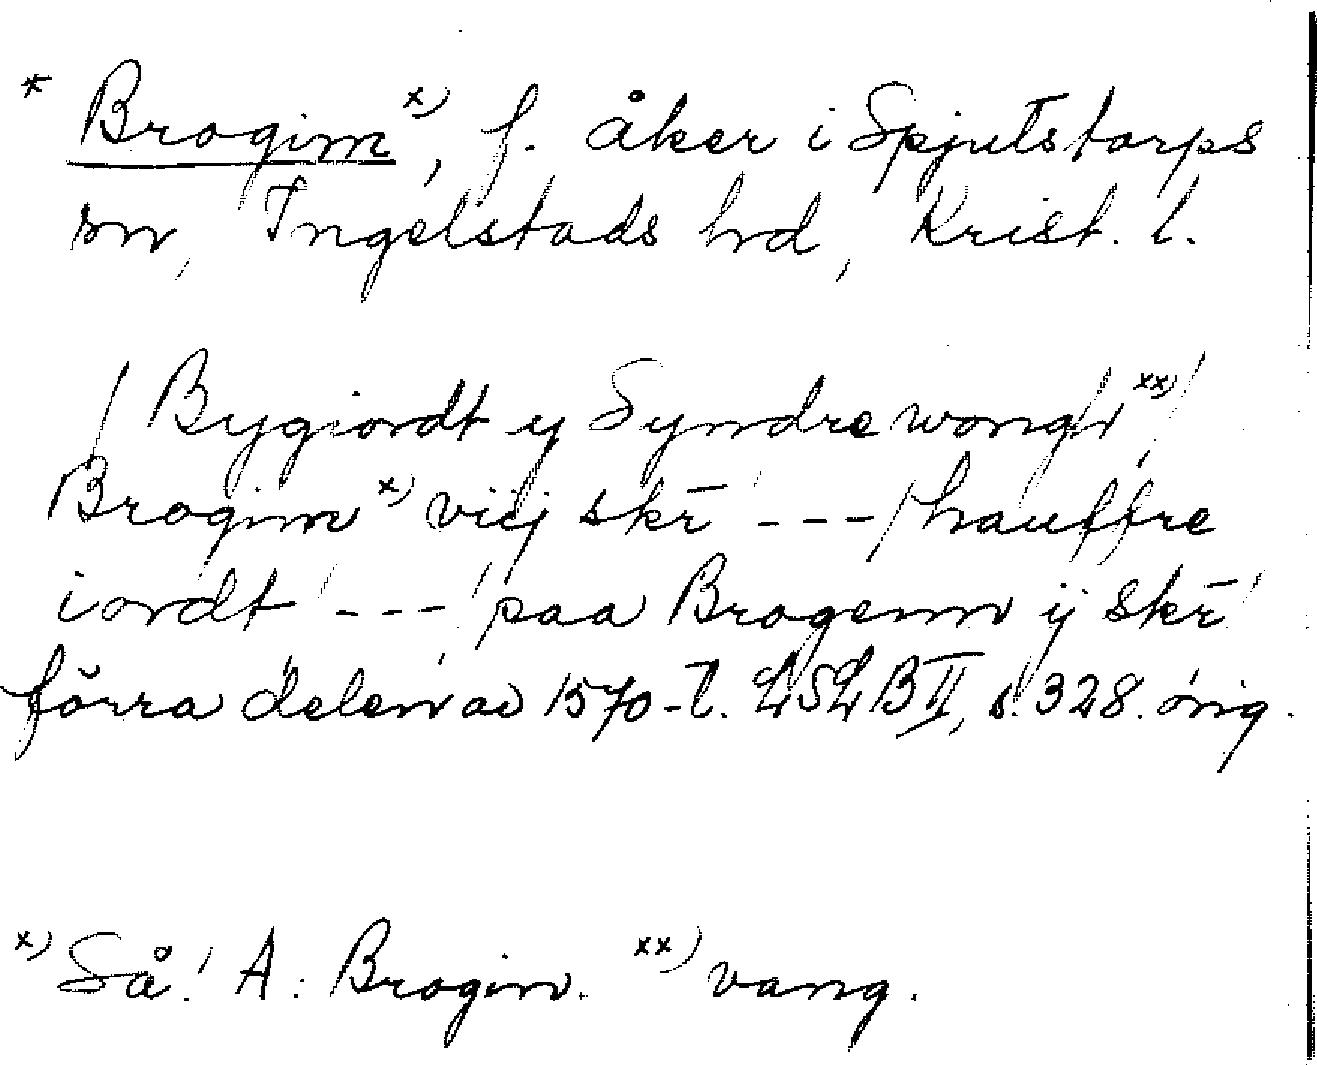 * Brogim x), f. åker i Spjutstorps
sn, Ingelstads hrd, Krist. l.
/ Bygiordt y Syndre wongh xx) /
Brogim x) viij skr̄ / - - - / hauffre
iordt / - - - / paa Brogenn ij skr̄ /
förra delen av 1570-t. LSLB II, s. 328. orig.
x) Så! A: Brogin. xx) vang.